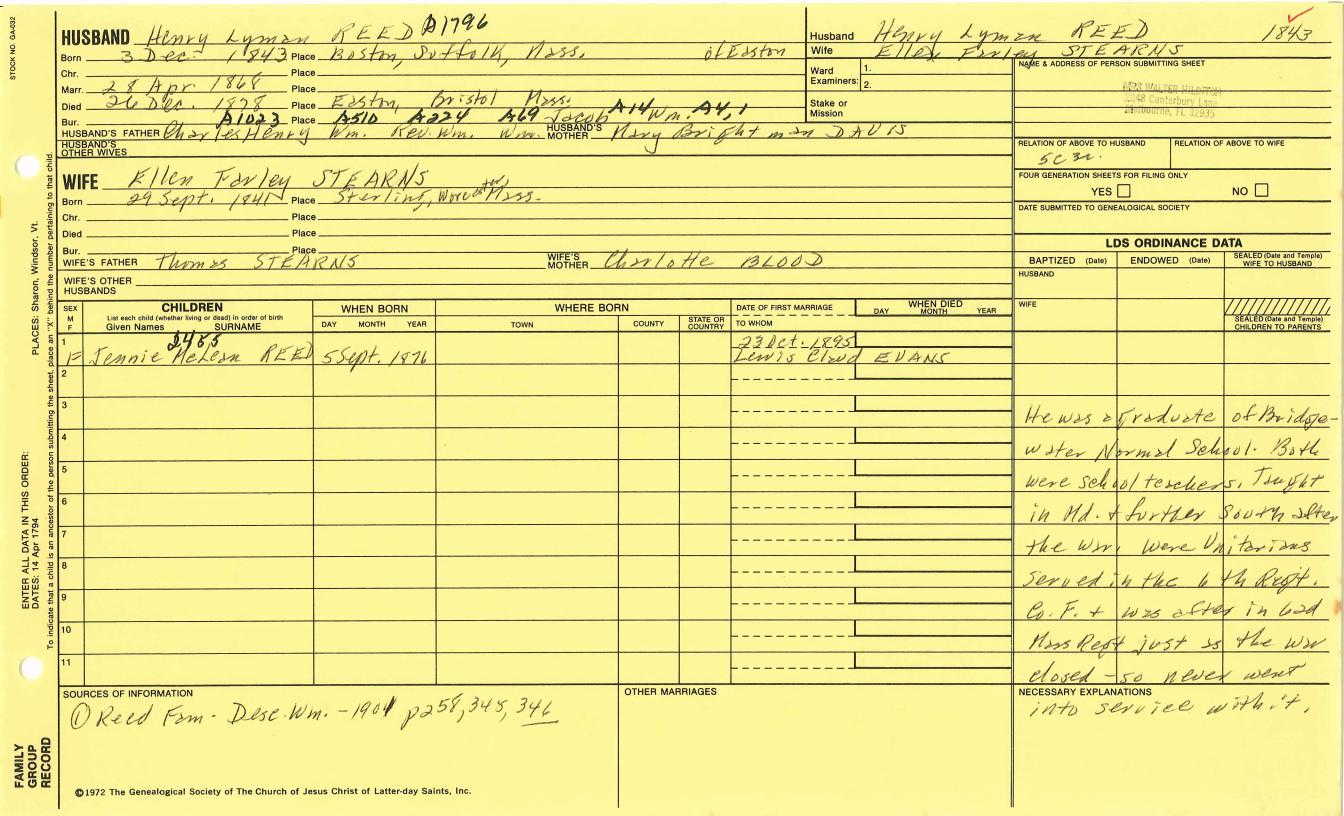 STOCK NO. GA-032
HUSBAND Henry Lyman REED A1796
Born 3 Dec. 1843 Place Boston, Suffolk, Mass. of Easton
Chr. Place
Marr. 28 Apr. 1868 Place
Died 26 Dec. 1878 Place Easton, Bristol Mass.
Bur. A1023 Place A510 A224 A69 Jacob A14 Wm. A4,1
HUSBAND'S FATHER Charles Henry Wm. Rev. Wm. Wm. HUSBAND'S MOTHER Mary Brightman DAVIS
HUSBAND'S OTHER WIVES
WIFE Ellen Farley STEARNS
Born 29 Sept. 1841 Place Sterling, Worcester, Mass.
Chr. Place
Died Place
Bur. Place
WIFE'S FATHER Thomas STEARNS WIFE'S MOTHER Charlotte BLOOD
WIFE'S OTHER HUSBANDS
Husband Henry Lyman REED 1843
Wife Ellen Farley STEARNS
Ward Examiners: 1.
2.
Stake or Mission
NAME & ADDRESS OF PERSON SUBMITTING SHEET
Canterbury Lane
Melbourne, FL 32935
RELATION OF ABOVE TO HUSBAND RELATION OF ABOVE TO WIFE
5C3r.
FOUR GENERATION SHEETS FOR FILING ONLY
YES NO
DATE SUBMITTED TO GENEALOGICAL SOCIETY
LDS ORDINANCE DATA
BAPTIZED (Date) ENDOWED (Date) SEALED (Date and Temple) WIFE TO HUSBAND
HUSBAND
WIFE
SEALED (Date and Temple) CHILDREN TO PARENTS
SEX M F
CHILDREN
List each child (whether living or dead) in order of birth
Given Names SURNAME
WHEN BORN
DAY MONTH YEAR
WHERE BORN
TOWN COUNTY STATE OR COUNTRY
DATE OF FIRST MARRIAGE
TO WHOM
WHEN DIED
DAY MONTH YEAR
1 2485 23 Oct. 1895
F Jennie McLean REED 5 Sept. 1876 Lewis Claud EVANS
2
3
4
5
6
7
8
9
10
11
He was a graduate of Bridge-
water Normal School. Both
were school teachers. Taught
in Md. + further South after
the War. were Unitarians
Served in the 6th Regt.
Co. F. + was after in 62d
Mass Regt just as the war
closed - so never went
NECESSARY EXPLANATIONS
into service with it.
SOURCES OF INFORMATION
① Reed Fam. Desc. Wm. - 1901 p258, 345, 346
OTHER MARRIAGES
©1972 The Genealogical Society of The Church of Jesus Christ of Latter-day Saints, Inc.
FAMILY GROUP RECORD
ENTER ALL DATA IN THIS ORDER:
DATES: 14 Apr 1794
PLACES: Sharon, Windsor, Vt.
To indicate that a child is an ancestor of the person submitting the sheet, place an "X" behind the number pertaining to that child.